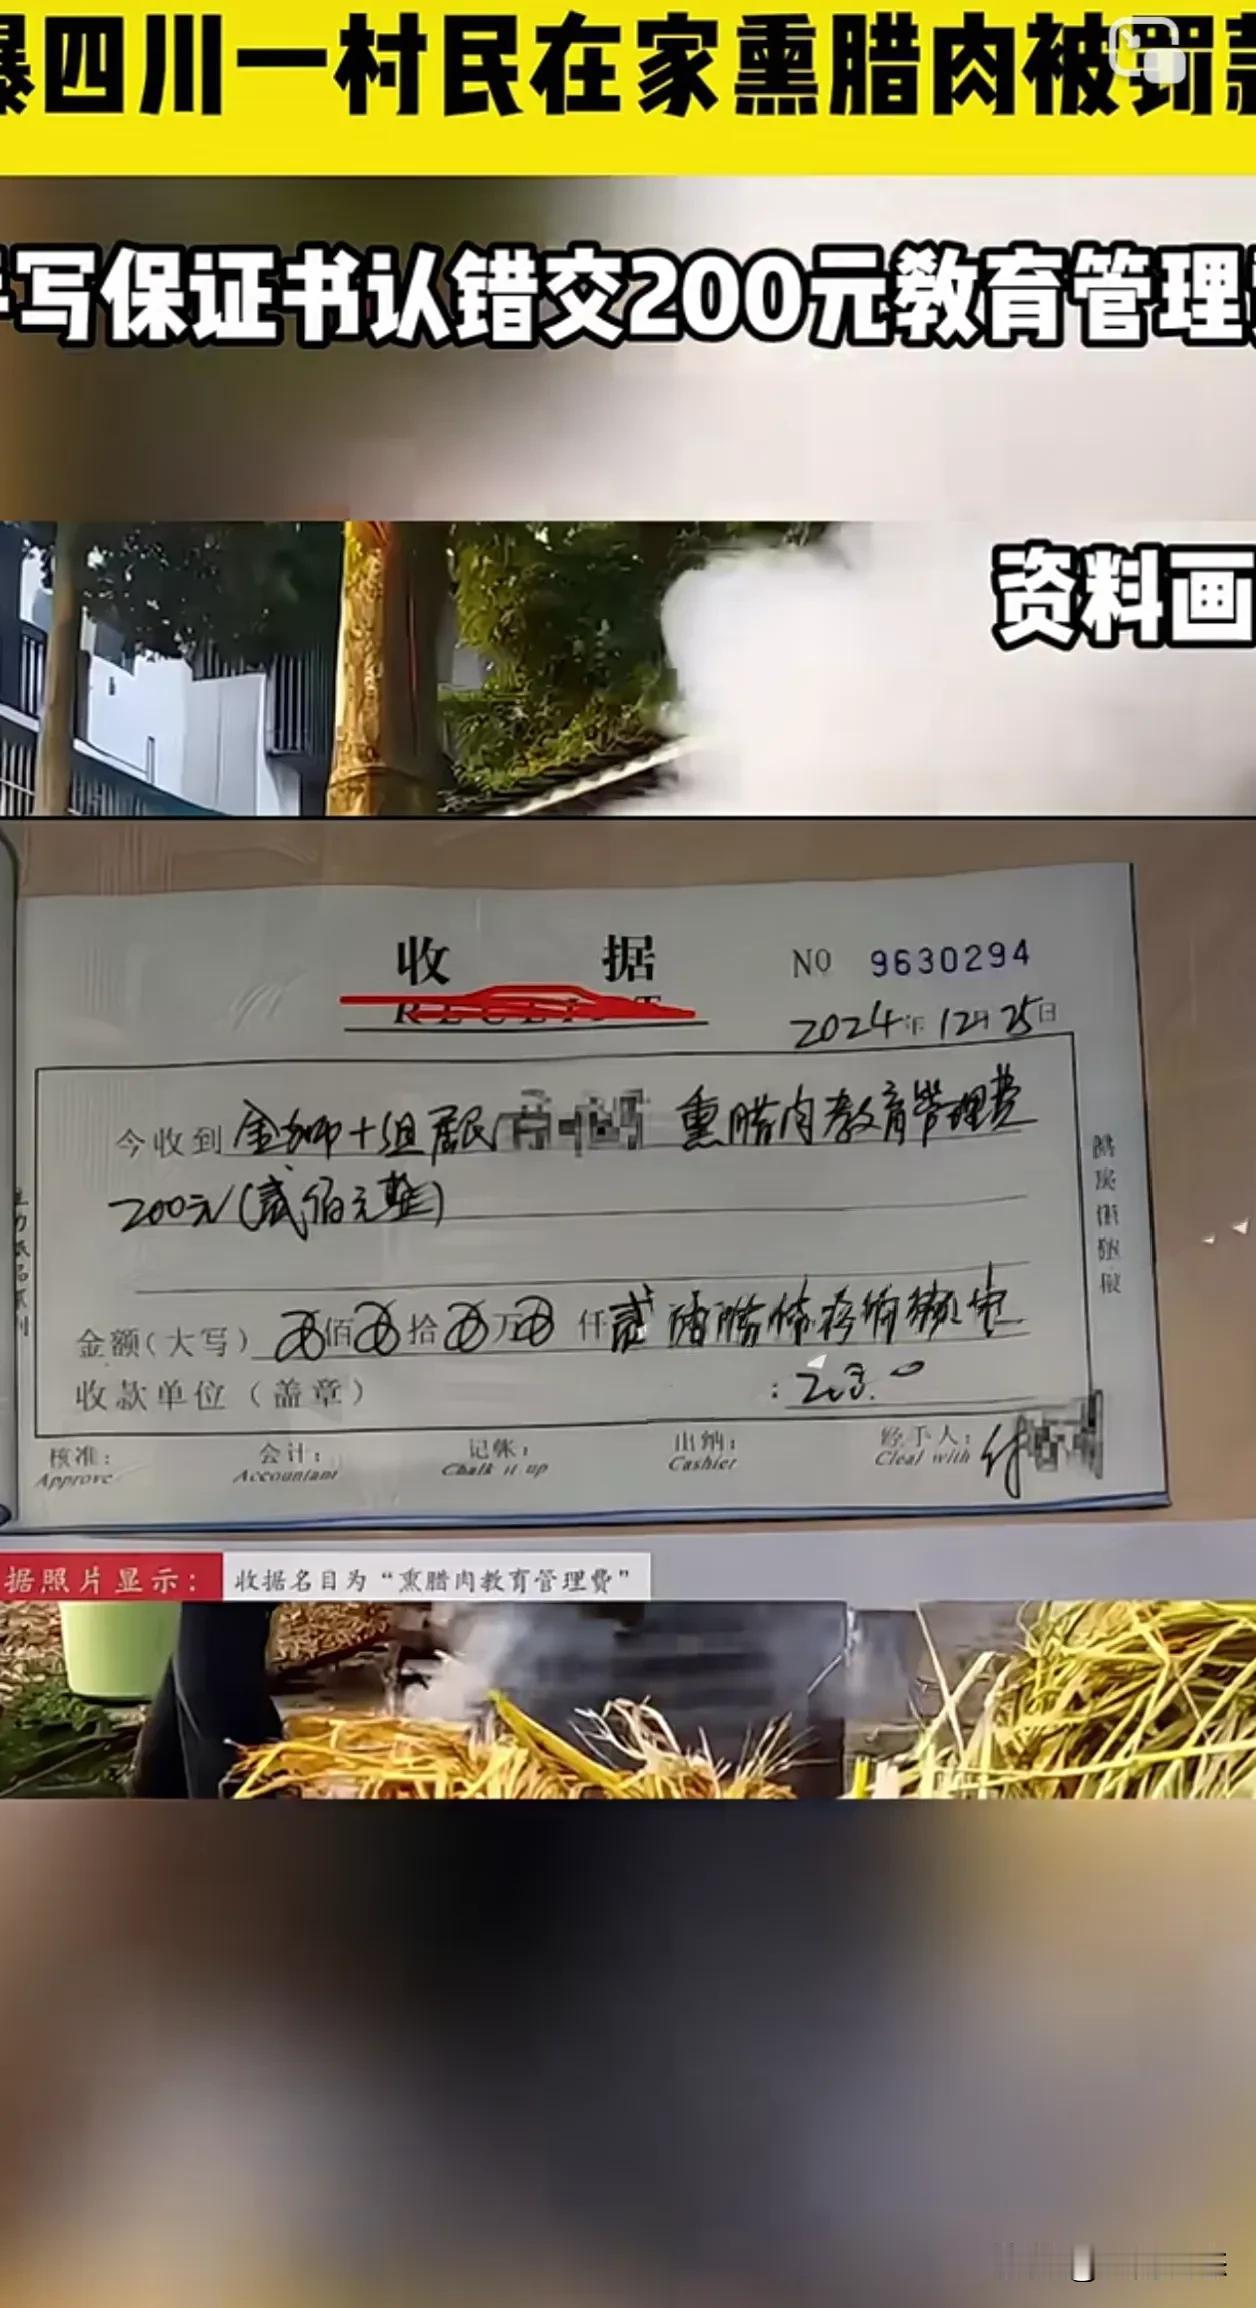 四川一村民在家熏腊肉被罚
写保证书认错交200元教育管理
资料画
收据
RECEIPT
NO 9630294
2024年12月25日
今收到金狮十组居民 熏腊肉教育管理费
200元(贰佰元整)
金额(大写) 佰 拾 万 仟 贰
收款单位(盖章)
核准: 会计: 记帐: 出纳: 经手人: 付
Approve Accountant Chalk it up Cashier Cleal with
据照片显示: 收据名目为“熏腊肉教育管理费”